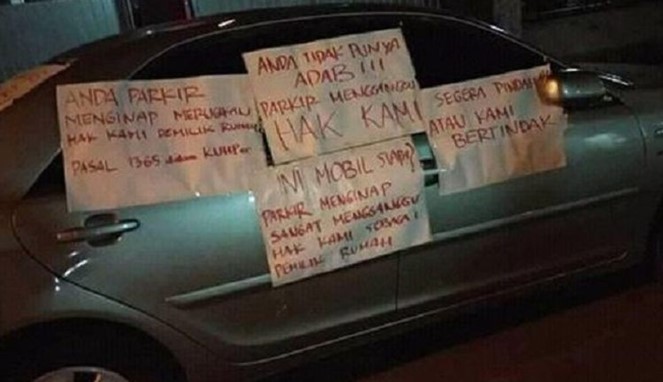 ANDA PARKIR
MENGINAP MERUGIKAN
HAK KAMI PEMILIK RUMAH
PASAL 1365 dalam KUHPer
ANDA TIDAK PUNYA
ADAB!!!
PARKIR MENGGANGGU
HAK KAMI
SEGERA PINDAH
ATAU KAMI
BERTINDAK
INI MOBIL SIAPA?
PARKIR MENGINAP
SANGAT MENGGANGGU
HAK KAMI SEBAGAI
PEMILIK RUMAH